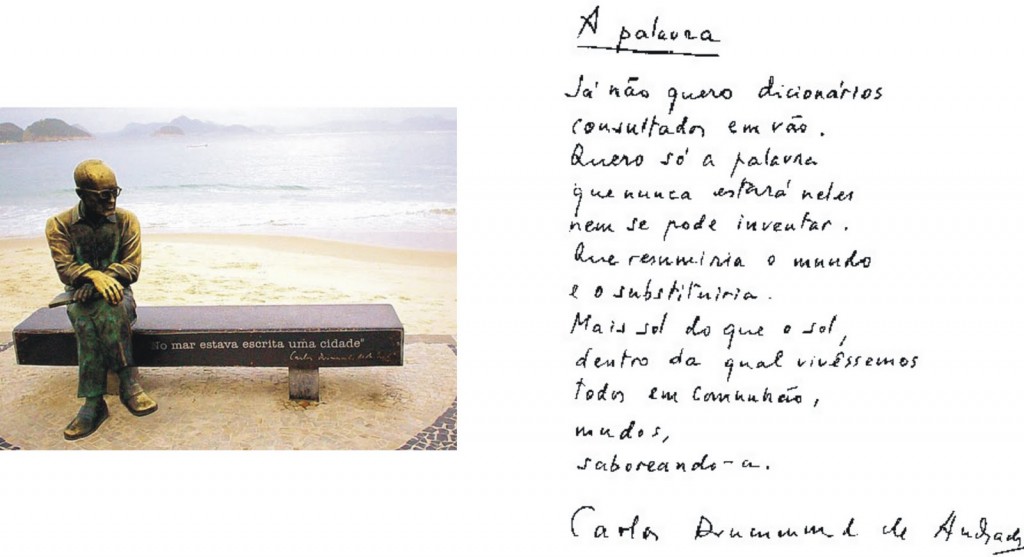 No mar estava escrita uma cidade"
Carlos Drummond de Andrade
A palavra
Já não quero dicionários
consultados em vão.
Quero só a palavra
que nunca estará neles
nem se pode inventar.
Que resumiria o mundo
e o substituiria.
Mais sol do que o sol,
dentro da qual vivêssemos
todos em comunhão,
mudos,
saboreando-a.
Carlos Drummond de Andrade